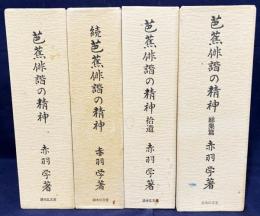 芭蕉俳諧の精神
赤羽学著
清水弘文堂
続芭蕉俳諧の精神
赤羽学著
清水弘文堂
芭蕉俳諧の精神 拾遺
赤羽学著
清水弘文堂
芭蕉俳諧の精神 総集篇
赤羽学著
清水弘文堂